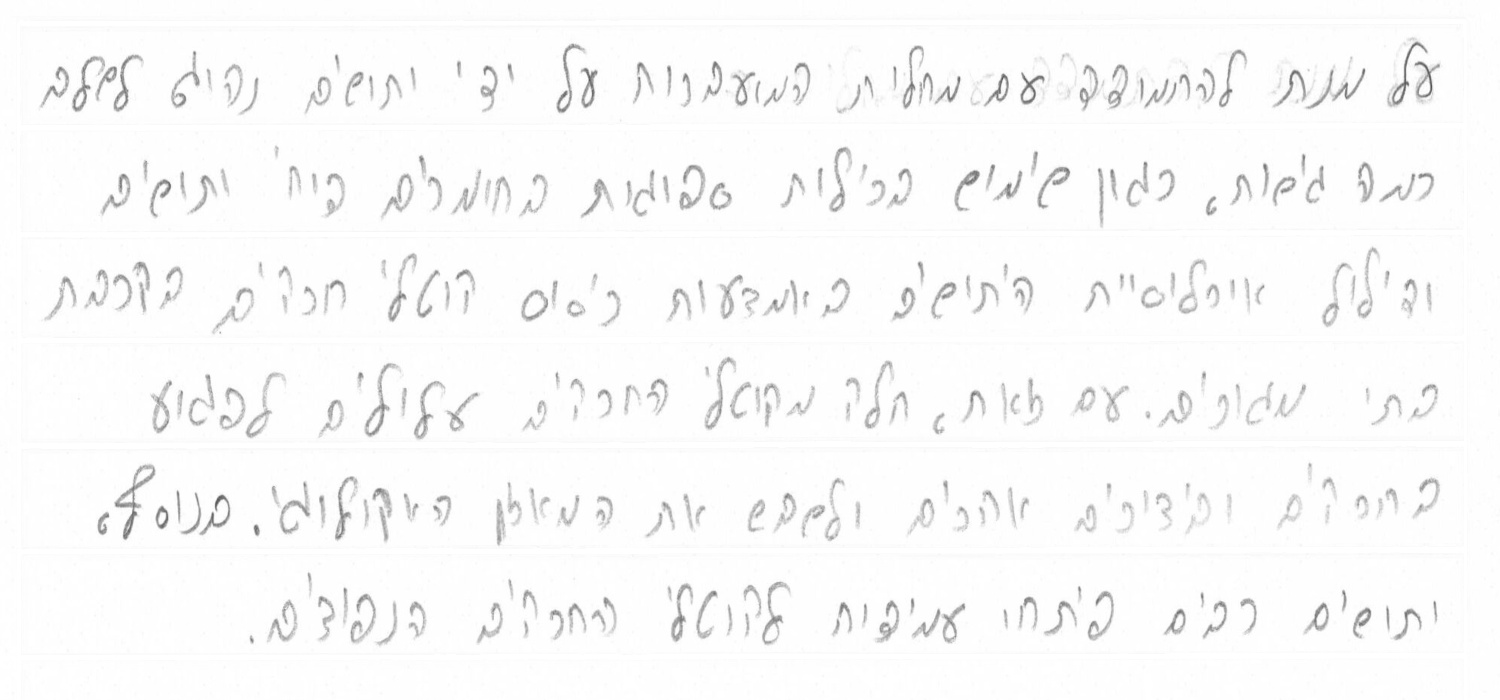 על מנת להתמודד עם מחלות המועברות על ידי יתושים נהוג לשלב
כמה גישות, כגון שימוש בכילות ספוגות בחומרים דוחי יתושים
ודילול אוכלוסיית היתושים באמצעות ריסוס קוטלי חרקים בקרבת
בתי מגורים. עם זאת, חלק מקוטלי החרקים עלולים לפגוע
בחרקים ובידורים אחרים ולשבש את המאזן האקולוגי. בנוסף,
יתושים רבים פיתחו עמידות לקוטלי החרקים הנפוצים.